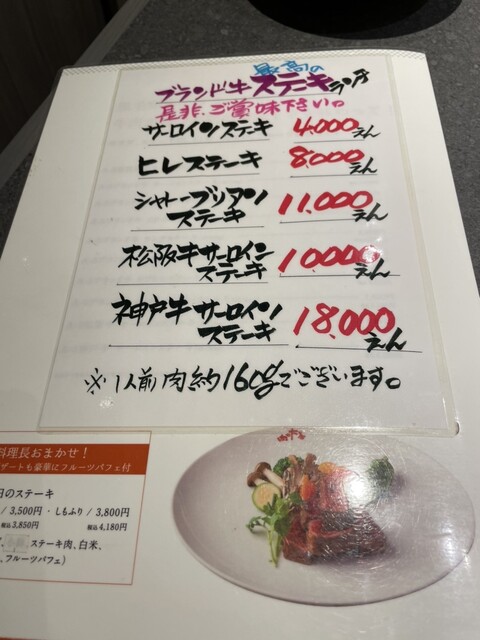 最高の
ブランド牛ステーキランチ
是非、ご賞味下さい。
サーロインステーキ 4,000えん
ヒレステーキ 8,000えん
シャトーブリアン
ステーキ 11,000えん
松阪牛サーロイン
ステーキ 10,000えん
神戸牛サーロイン
ステーキ 18,000えん
※1人前肉約160gでございます。
料理長おまかせ！
ザートも豪華にフルーツパフェ付
日のステーキ
/ 3,500円 ・ しもふり / 3,800円
税込3,850円 税込4,180円
ステーキ肉、白米、
、フルーツパフェ）